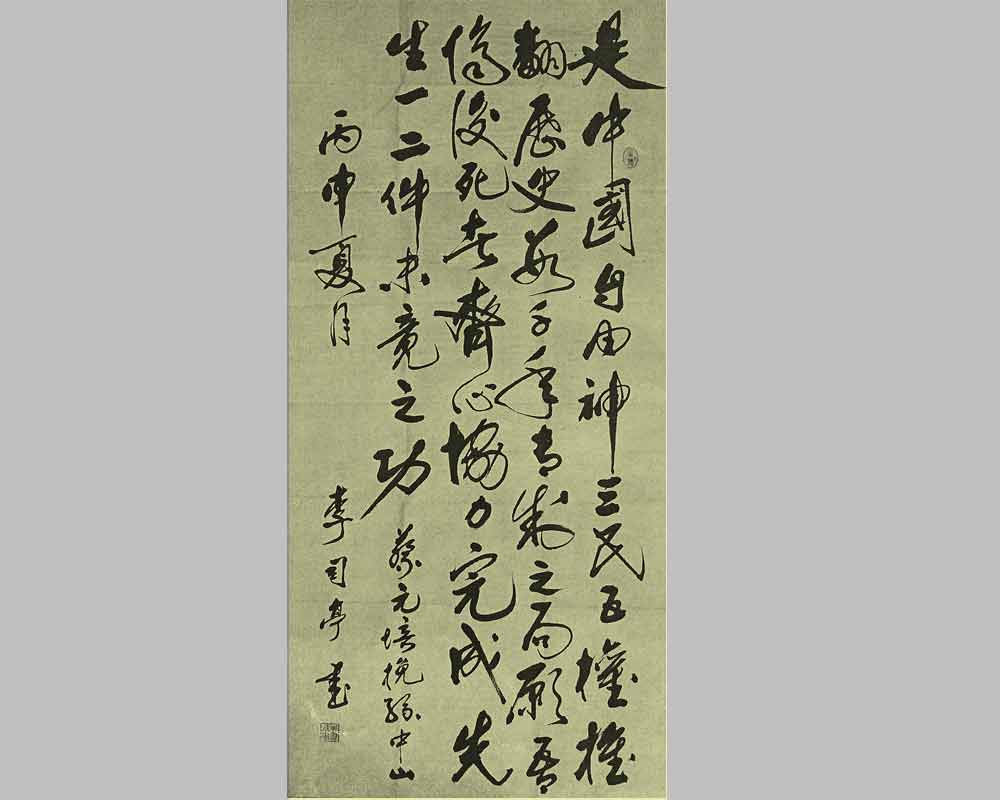 是中國自由神三民五權推
翻歷史數千年專制之局願吾
儕後死者齊心協力完成先
生一二件未竟之功 蔡元培挽孫中山
丙申夏月 李司亭書